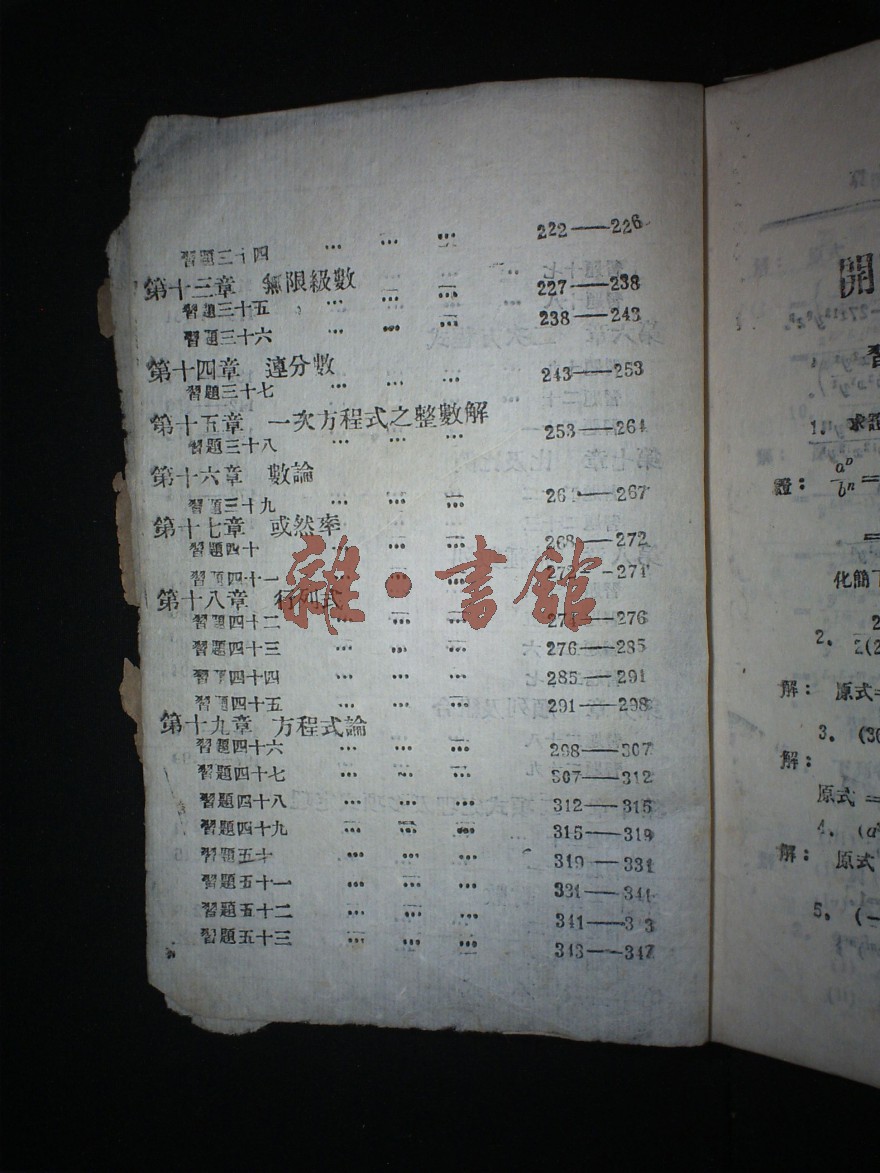 習題三十四 ... ... ... 222——226
第十三章 無限級數
習題三十五 ... ... ... 227——238
習題三十六 ... ... ... 238——243
第十四章 連分數
習題三十七 ... ... ... 243——253
第十五章 一次方程式之整數解
習題三十八 ... ... ... 253——264
第十六章 數論
習題三十九 ... ... ... ——267
第十七章 或然率
習題四十 ... ... 268——272
習題四十一 ... ... ...
第十八章 行列式
習題四十二 ... ... ... ——276
習題四十三 ... ... ... 276——285
習題四十四 ... ... ... 285——291
習題四十五 ... ... ... 291——298
第十九章 方程式論
習題四十六 ... ... ... 298——307
習題四十七 ... ... ... 307——312
習題四十八 ... ... ... 312——315
習題四十九 ... ... ... 315——319
習題五十 ... ... ... 319——331
習題五十一 ... ... ... 331——341
習題五十二 ... ... ... 341——3 3
習題五十三 ... ... ... 343——347
雜·書館
開
習
1. 求證
證: =
=
化簡下
2.
解: 原式=
3. (30
解:
原式 =
4. (a
解: 原式
5. (—